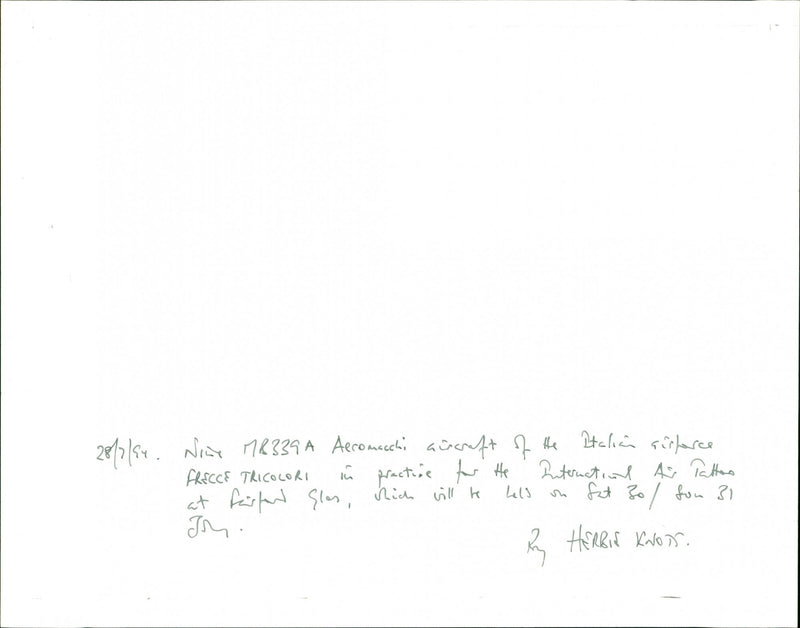 28/7/94. Nine MB339A Aeromacchi aircraft of the Italian airforce
FRECCE TRICOLORI in practice for the International Air Tattoo
at Fairford Glos, which will be held on Sat 30/ Sun 31
July.
By HERBIE KNOTT.